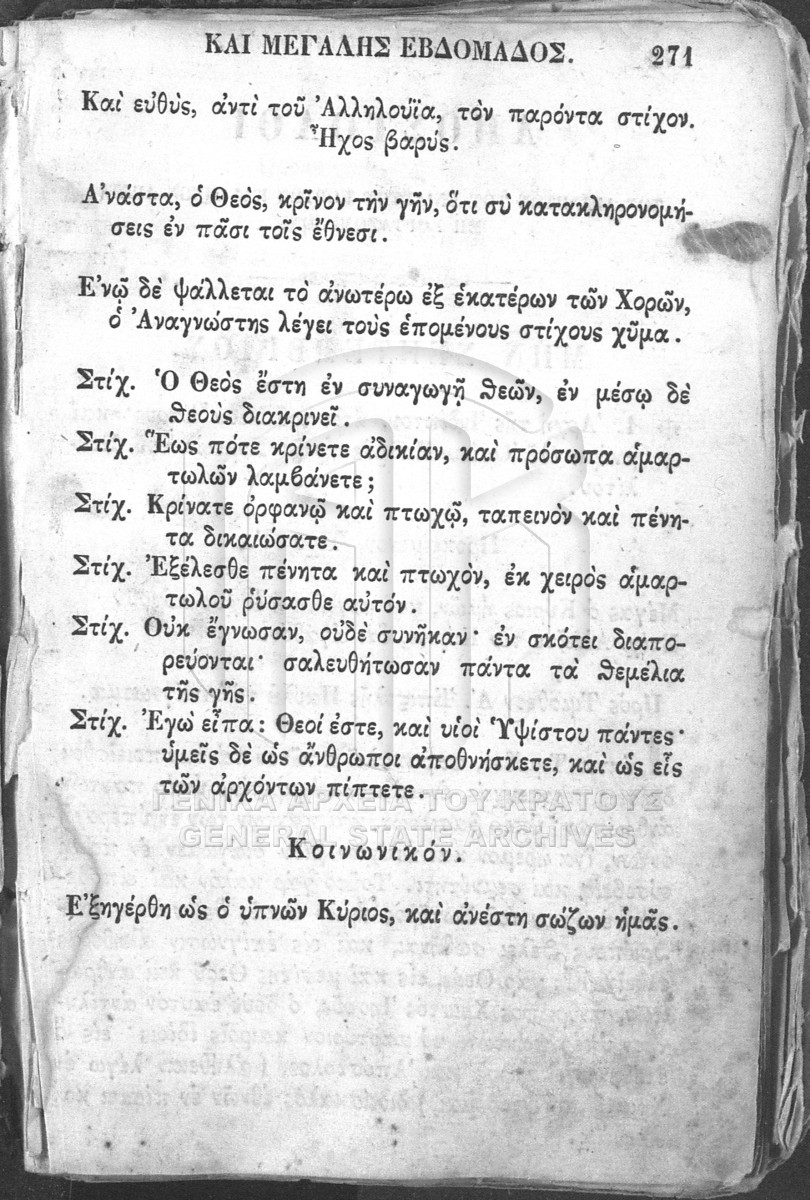 ΚΑΙ ΜΕΓΑΛΗΣ ΕΒΔΟΜΑΔΟΣ. 271
Καὶ εὐθὺς, ἀντὶ τοῦ Ἀλληλούϊα, τὸν παρόντα στίχον.
Ἦχος βαρύς.
Ἀνάστα, ὁ Θεὸς, κρῖνον τὴν γῆν, ὅτι σὺ κατακληρονομή-
σεις ἐν πᾶσι τοῖς ἔθνεσι.
Ἐνῷ δὲ ψάλλεται τὸ ἀνωτέρω ἐξ ἑκατέρων τῶν Χορῶν,
ὁ Ἀναγνώστης λέγει τοὺς ἑπομένους στίχους χῦμα.
Στίχ. Ὁ Θεὸς ἔστη ἐν συναγωγῇ ϑεῶν, ἐν μέσῳ δὲ
ϑεοὺς διακρινεῖ.
Στίχ. Ἕως πότε κρίνετε ἀδικίαν, καὶ πρόσωπα ἁμαρ-
τωλῶν λαμϐάνετε;
Στίχ. Κρίνατε ὀρφανῷ καὶ πτωχῷ, ταπεινὸν καὶ πένη-
τα δικαιώσατε.
Στίχ. Ἐξέλεσθε πένητα καὶ πτωχὸν, ἐκ χειρὸς ἁμαρ-
τωλοῦ ῥύσασθε αὐτόν.
Στίχ. Οὐκ ἔγνωσαν, οὐδὲ συνῆκαν· ἐν σκότει διαπο-
ρεύονται· σαλευθήτωσαν πάντα τὰ ϑεμέλια
τῆς γῆς.
Στίχ. Ἐγὼ εἶπα: Θεοί ἐστε, καὶ υἱοὶ Ὑψίστου πάντες·
ὑμεῖς δὲ ὡς ἄνθρωποι ἀποθνήσκετε, καὶ ὡς εἷς
τῶν ἀρχόντων πίπτετε.
ΓΕΝΙΚΑ ΑΡΧΕΙΑ ΤΟΥ ΚΡΑΤΟΥΣ
GENERAL STATE ARCHIVES
Κοινωνικόν.
Ἐξηγέρθη ὡς ὁ ὑπνῶν Κύριος, καὶ ἀνέστη σώζων ἡμᾶς.